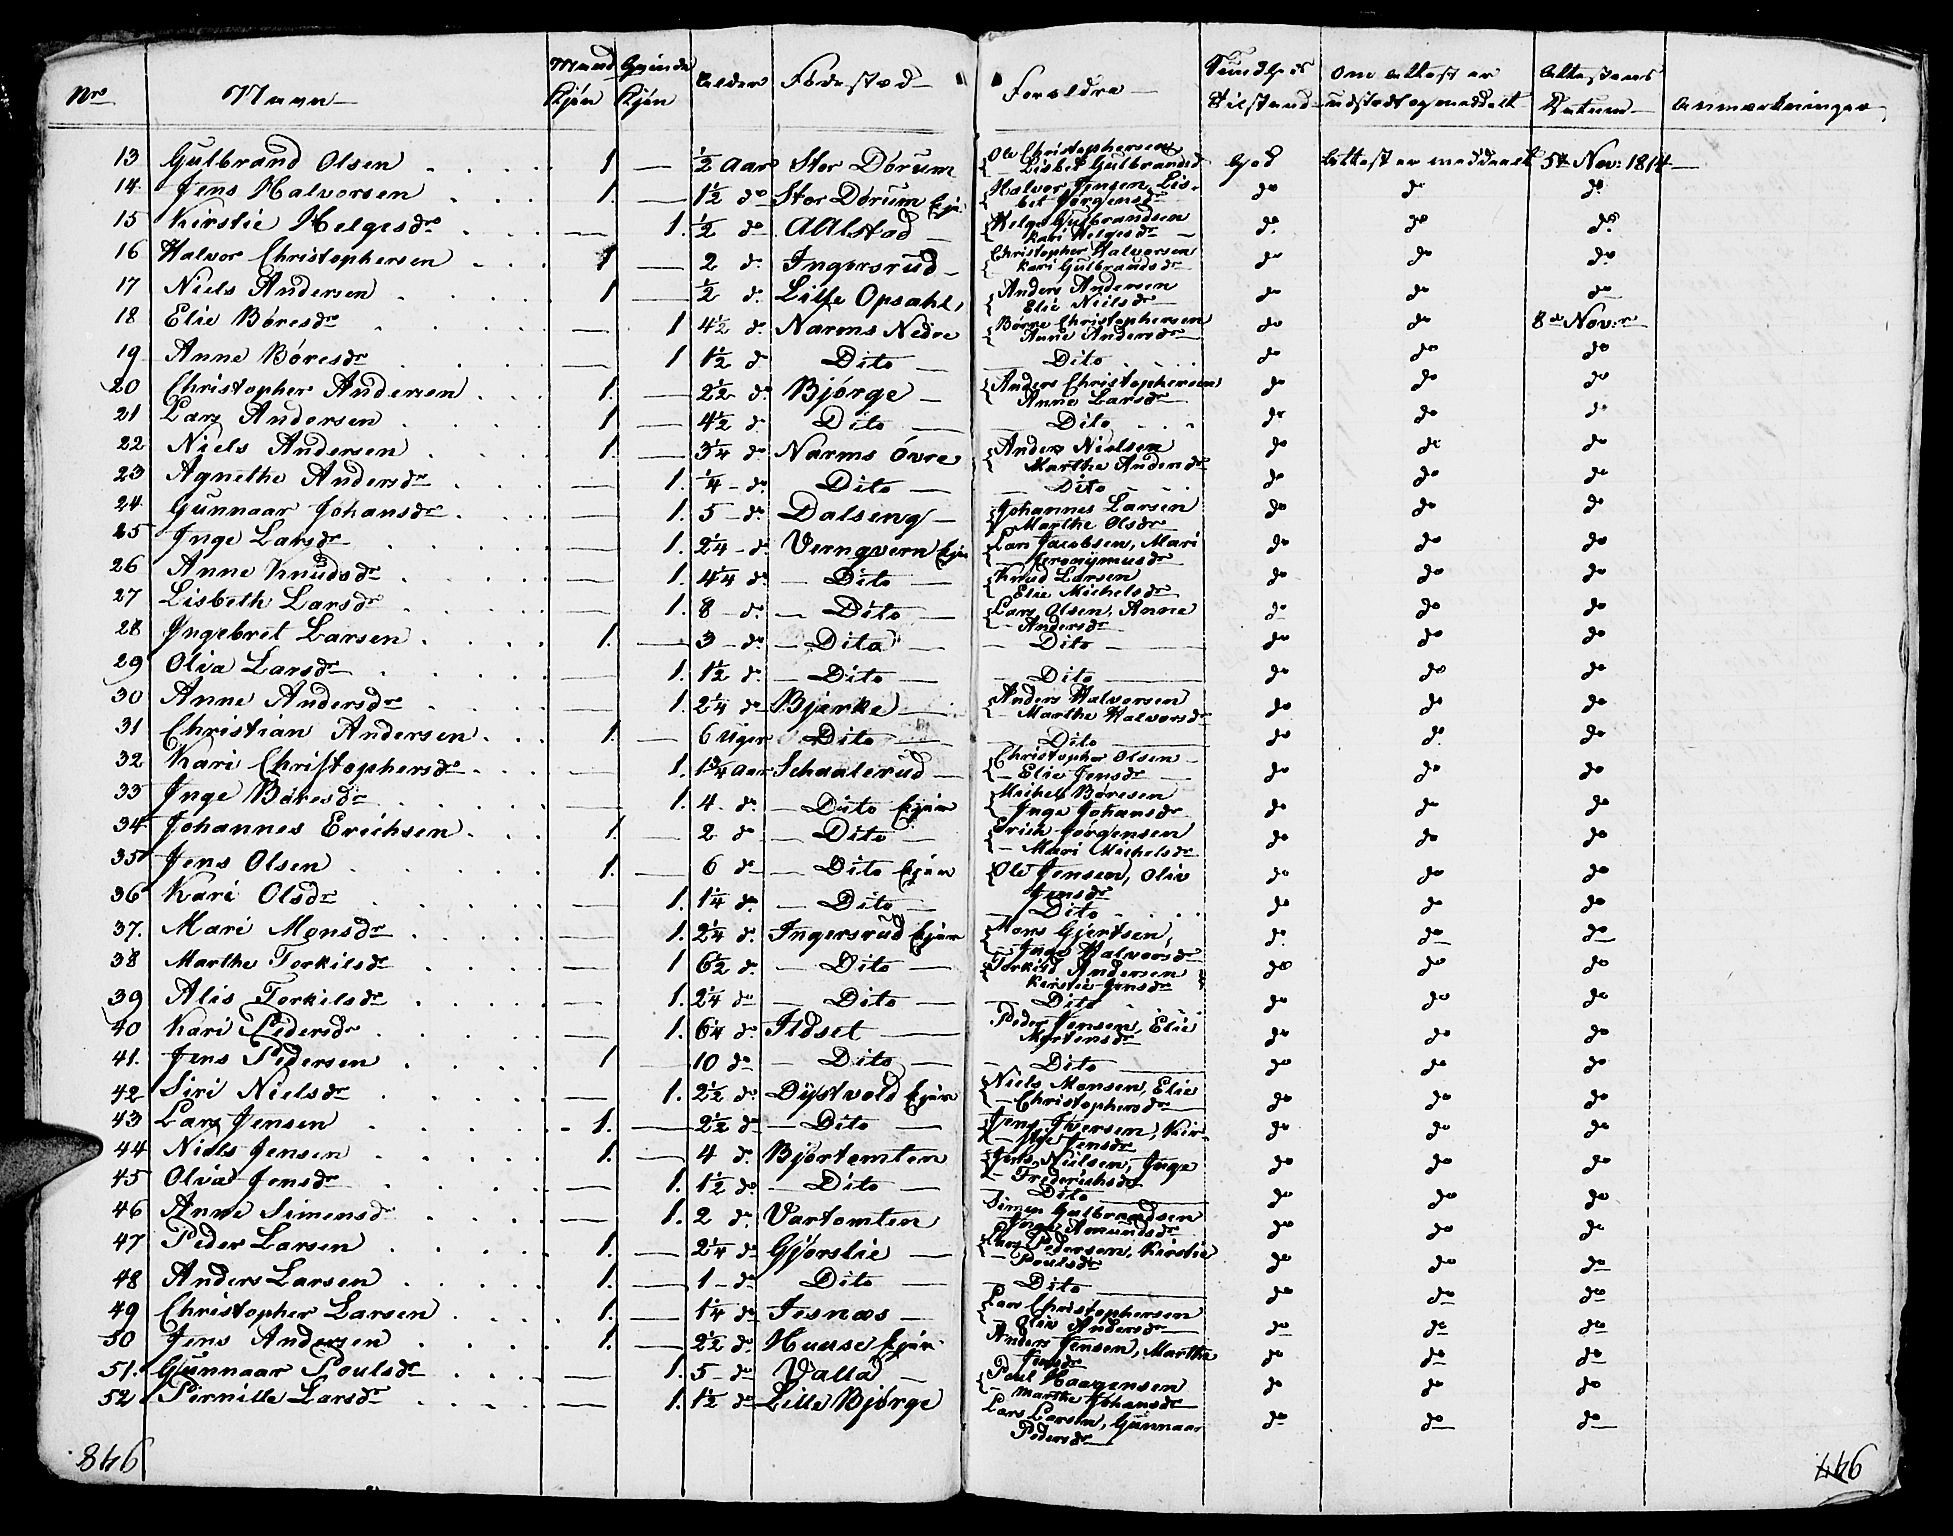 Nro Navn Mand Kjøn Qvinde Kjøn Alder Fødested Forældre Sundheds Tilstand Om Attest er udstædt og meddeelt Attestens Datum Anmærkninger
13 Gulbrand Olsen 1 — ½ Aar Stor Dørum Ole Christophersen Lisbet Gulbrandsd God Attest er meddeelt 5t Nov: 1814
14 Jens Halvorsen 1. — 1½ do Stor Dørum Ejer Halvor Jensen Lisbet Jørgensdr do do do
15 Kirstie Helgesdr — 1. ½ do Alstad Helge Gulbrandsen Kari Helgesdr do do do
16 Halvor Christophersen 1 — 2 do Ingersrud Christopher Halvorsen Kari Gulbrandsdr do do do
17 Niels Andersen 1 — ½ do Lille Opsahl Anders Andersen Elie Nielsdr do do do
18 Elie Børesdr — 1 4½ do Narms Nedre Børre Christophersen Anne Andersdr do do 8de Nov:r
19 Anne Børesdr — 1 1½ do Dito Dito do do do
20 Christopher Andersen 1. — 2½ do Bjørge Anders Christophersen Anne Larsdr do do do
21 Lars Andersen 1 — 4½ do Dito Dito do do do
22 Niels Andersen 1. — 3¼ do Narms Øvre Anders Nielsen Marthe Andersdr do do do
23 Agnethe Andersdr — 1. ¼ do Dito Dito do do do
24 Gunnaar Johansdr — 1. 5 do Dalseng Johannes Larsen Marthe Olsdr do do do
25 Inge Larsdr — 1. 2¼ do Verngvern Lars Jacobsen, Mari Jeronymusdr do do do
26 Anne Knudsdr — 1. 4¼ do Dito Knud Larsen Elie Michelsdr do do do
27 Lisbeth Larsdr — 1. 8 do Dito Lars Olsen, Anne Andersdr do do do
28 Ingebret Larsen 1. — 3 do Dito Dito do do do
29 Olia Larsdr — 1. 1½ do Dito Dito do do do
30 Anne Andersdr — 1. 2¼ do Bjerke Anders Halvorsen Marthe Halvorsdr do do do
31 Christian Andersen 1. — 6 Uger Dito Dito do do do
32 Kari Christophersdr — 1. 1¾ Aar Schaalerud Christopher Olsen Elie Jensdr do do do
33 Inge Børesdr — 1. 4 do Dito Michel Børesen Inge Johansdr do do do
34 Johannes Erichsen 1. — 2 do Dito Erich Jørgensen Mari Michelsdr do do do
35 Jens Olsen 1. — 6 do Dito Ole Jensen, Olia Jensdr do do do
36 Kari Olsdr — 1. 1¼ do Dito Dito do do do
37. Mari Monsdr — 1. 2¼ do Ingersrud Mons Gjertsen, Inge Halvorsdr do do do
38 Marthe Torkilsdr — 1 6½ do Dito Torkild Andersen Kirstie Jensdr do do do
39 Alis Torkilsdr — 1. 2¼ do Dito Dito do do do
40 Kari Pedersdr — 1. 6¼ do Ildset Peder Jensen, Elie Mortensdr do do do
41. Jens Pedersen 1 10 do Dito Dito do do do
42 Siri Nielsdr — 1. 2½ do Dystvold Niels Monsen, Elie Christophersdr do do do
43 Lars Jensen 1. — 2½ do Dito Jens Iversen, Kirstie Jensdr do do do
44 Niels Jensen 1. — 4 do Bjørtomten Jens Nielsen, Inge Frederichsdr do do do
45 Olia Jensdr — 1. 1½ do Dito Dito do do do
46 Anne Simensd — 1. 2 do Vartomten Simen Gulbrandsen Inge Amundsdr do do do
47 Peder Larsen 1. — 2¼ do Gjørslie Lars Pedersen, Kirstie Poulsdr do do do
48 Anders Larsen 1. — 1 do Dito Dito do do do
49 Christopher Larsen 1. — 1¼ do Jesnæs Lars Christophersen Olia Andersdr do do do
50 Jens Andersen 1. — 2½ do Huuse Anders Jensen, Marthe Jensdr do do do
51. Gunnaar Poulsdr — 1. 5 do Vallad Poul Haagensen Marthe Johansdr do do do
52 Pernille Larsdr — 1. 1½ do Lille Bjørge Lars Larsen, Gunnaar Pedersdr do do do
846